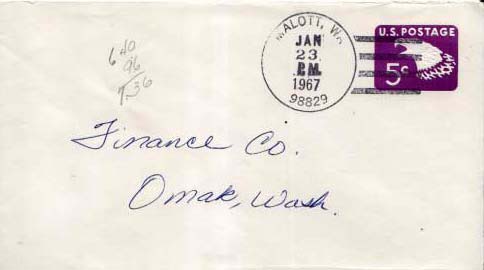 MALOTT, W
JAN
23
P.M.
1967
98829
U.S. POSTAGE
5¢
6 40
96
7.36
Finance Co.
Omak, Wash.